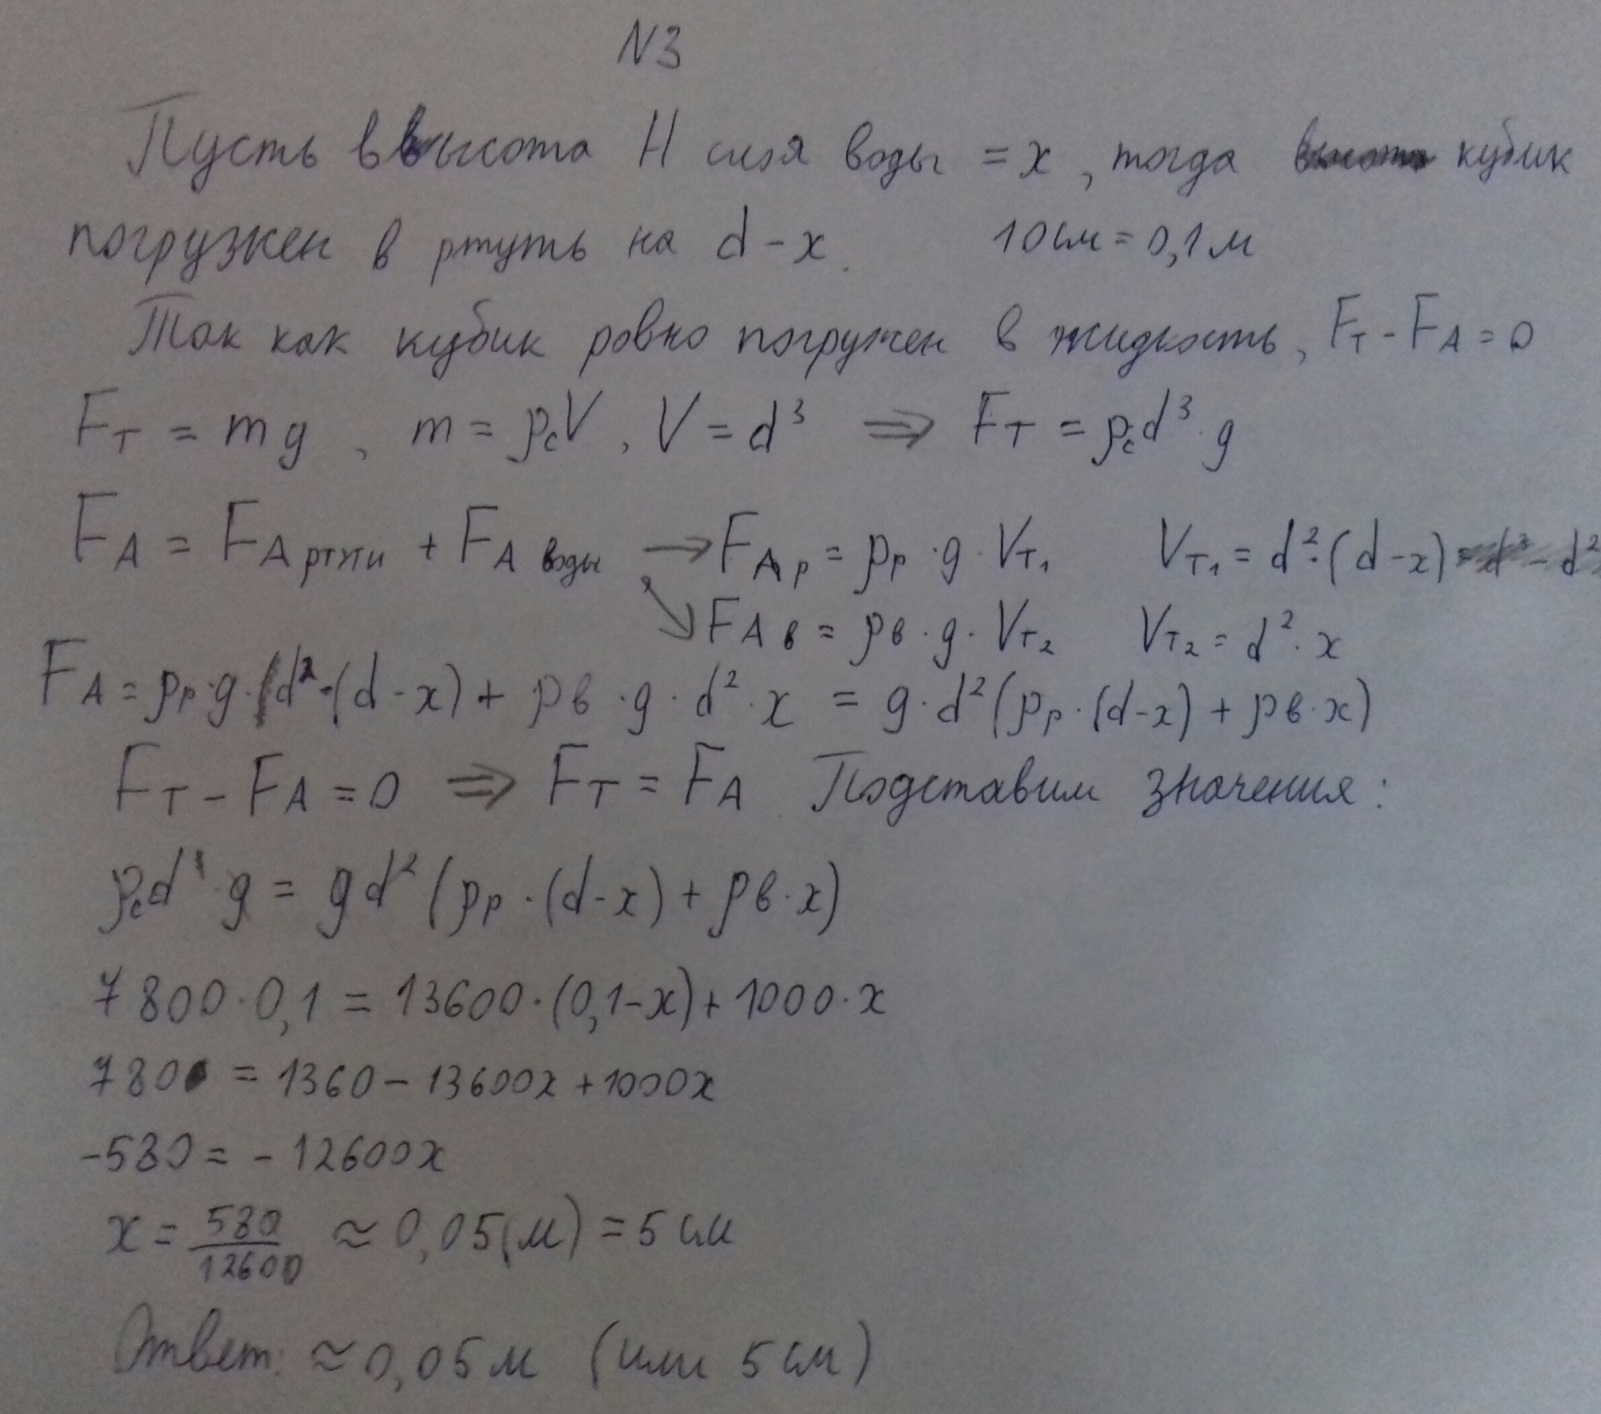 N3
Пусть высота H слоя воды = x, тогда кубик
погружен в ртуть на d - x. 10 см = 0,1 м
Так как кубик ровно погружен в жидкость, Fт - FA = 0
Fт = mg, m = ρcV, V = d³ ⇒ Fт = ρcd³·g
FA = FA ртути + FA воды → FAр = ρр·g·Vт₁ Vт₁ = d²·(d-x)
↘ FAв = ρв·g·Vт₂ Vт₂ = d²·x
FA = ρр·g·d²·(d-x) + ρв·g·d²·x = g·d²(ρр·(d-x) + ρв·x)
Fт - FA = 0 ⇒ Fт = FA Подставим значения:
ρcd·g = gd²(ρр·(d-x) + ρв·x)
7800·0,1 = 13600·(0,1-x) + 1000·x
780 = 1360 - 13600x + 1000x
-580 = -12600x
x = 580/12600 ≈ 0,05(м) = 5 см
Ответ: ≈ 0,05 м (или 5 см)